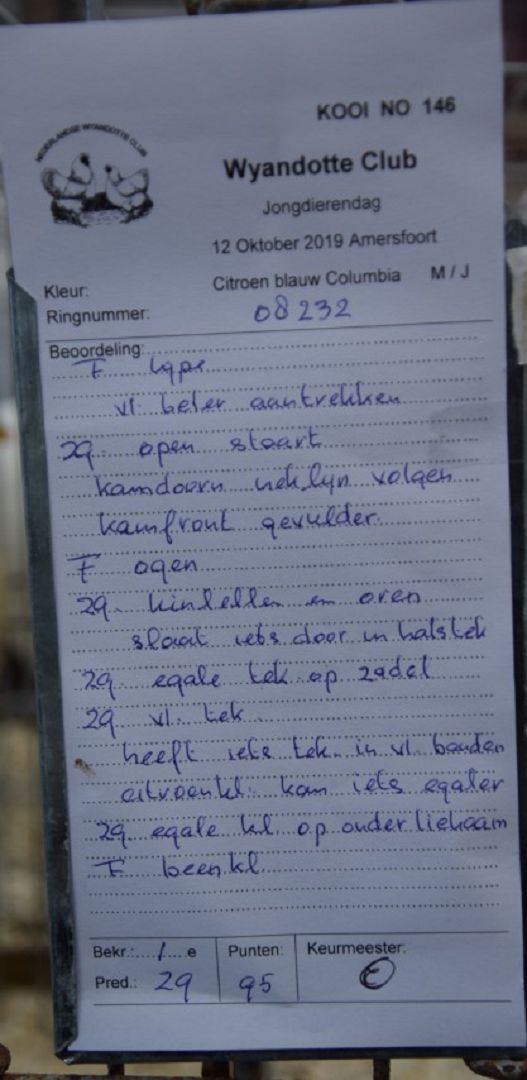 NEDERLANDSE WYANDOTTE CLUB
KOOI NO 146
Wyandotte Club
Jongdierendag
12 Oktober 2019 Amersfoort
Kleur: Citroen blauw Columbia M / J
Ringnummer: 08232
Beoordeling:
F type
vl. beter aantrekken
zg. open staart
kamdoorn neklyn volgen
kamfront gevulder
F ogen
zg. kinlellen en oren
slaat iets door in halstek
zg. egale tek op zadel
zg vl. tek
heeft iets tek. in vl. banden
citroenkl. kam iets egaler
zg egale kl. op onderlichaam
F beenkl
Bekr.: 1 e Punten: Keurmeester:
Pred.: zg 95